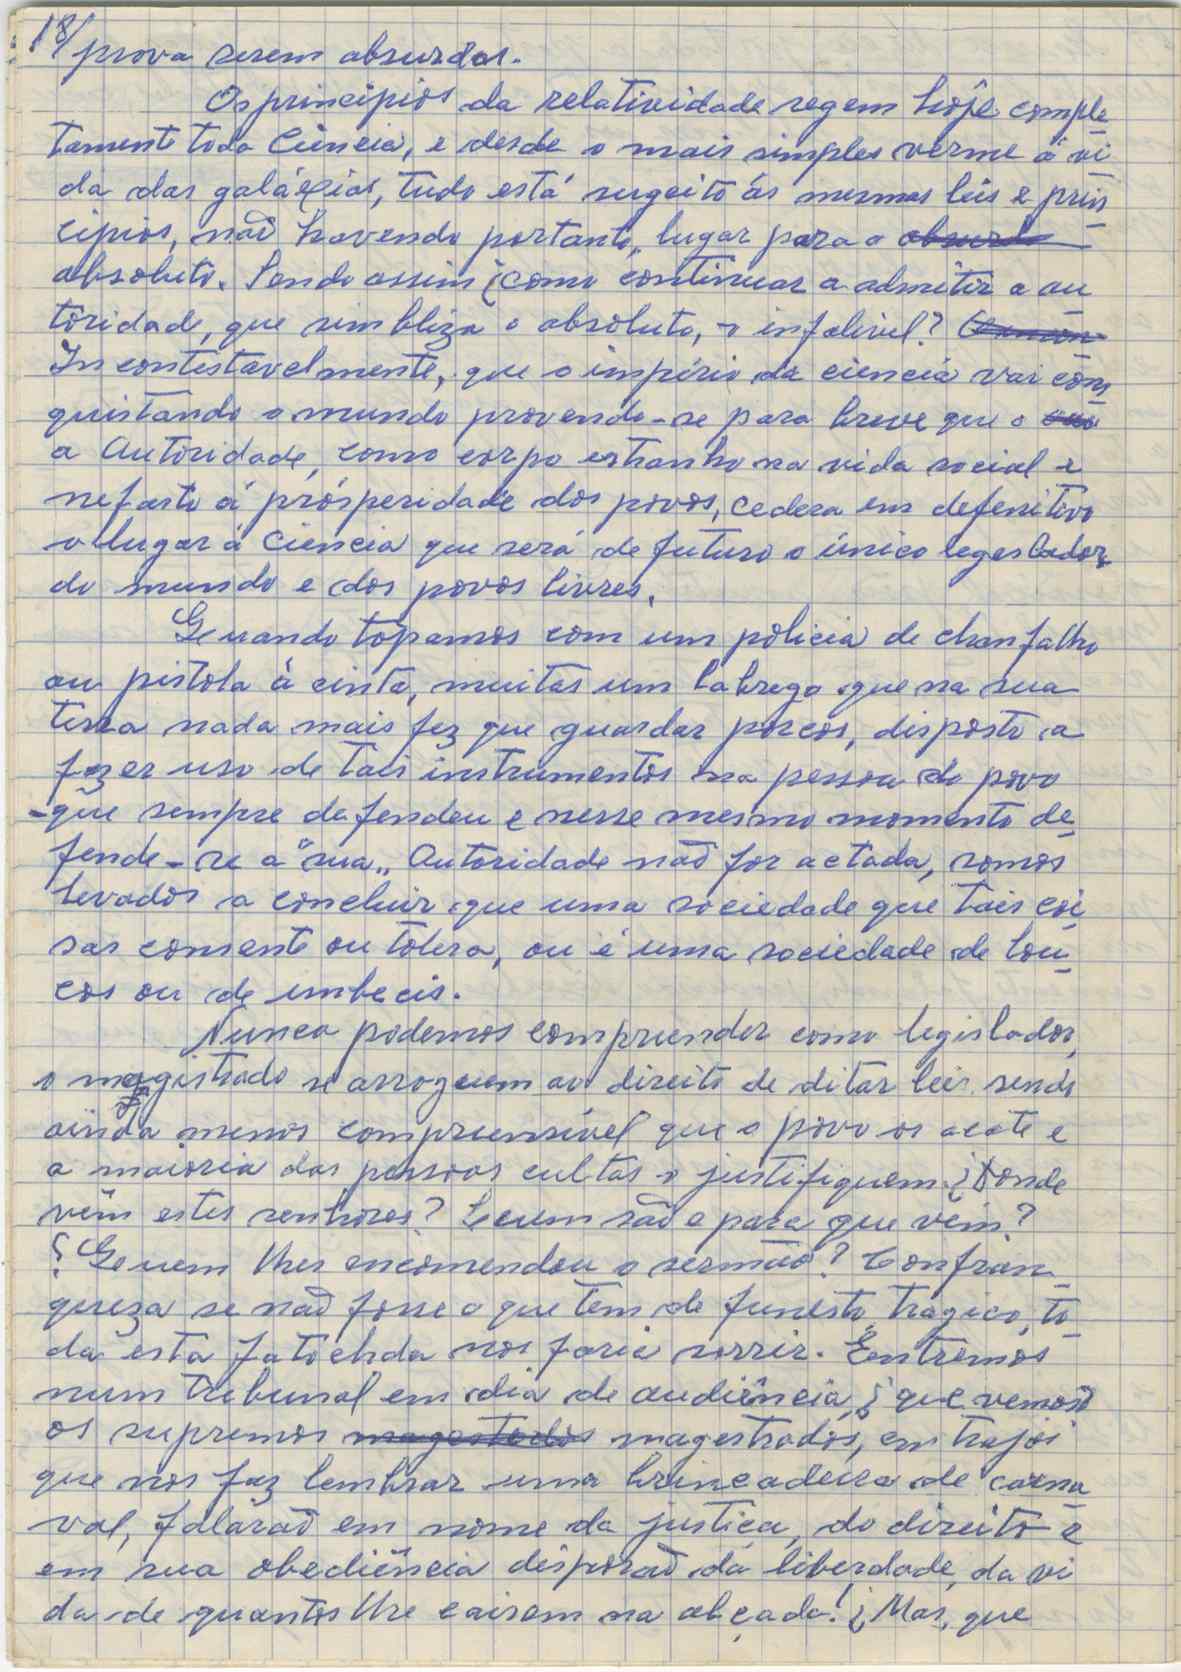 18/ prova serem absurdos.
Os principios da relatividade regem hôje comple
tamente toda Ciência, e desde o mais simples verme á vi
da das galáxias, tudo está sugeito ás mesmas leis e prin
cipios, não havendo portanto, lugar para o absurdo
absoluto. Sendo assim ¿como continuar a admitir a au
toridade, que simbliza o absoluto, o infalivel?
Incontestavelmente, que o império da ciencia vai con
quistando o mundo provendo-se para breve que o
a Autoridade, como corpo estranho na vida social e
nefasto á prósperidade dos povos, cedera em defenitivo
o lugar á Ciencia que será de futuro o único legeslador
do mundo e dos povos livres.
Quando topamos com um policia de chanfalho
ou pistola á cinta, muitas um labrego que na sua
terra nada mais fez que guardar porcos, disposto a
fazer uso de tais instrumentos na pessoa do povo
que sempre defendeu e nesse mesmo momento de
fende-se a "sua" Autoridade não for actada, somos
levados a concluir que uma sociedade que tais coi
sas consente ou tolera, ou é uma sociedade de lou
cos ou de imbecis.
Nunca podemos compreender como legislador,
o magistrado se arroguem ao direito de ditar leis sendo
ainda menos compreensível que o povo os acate e
a maioria das pessoas cultas o justifiquem. ¿Donde
vêm estes senhores? Quem são e para que vêm?
¿Quem lhes encomendou o sermão? Com fran
queza se não fosse o que tem de funesto, tragico, to
da esta fatochada nos faria sorrir. Entremos
num Tribunal em dia de audiência, ¿que vemos?
os supremos magestados magestrados, em trajos
que nos faz lembrar uma brincadeira de carna
val, falarão em nome da justiça, do direito e
em sua obediência disporão da liberdade, da vi
da de quantos lhe cairem na alçada! ¿Mas, que